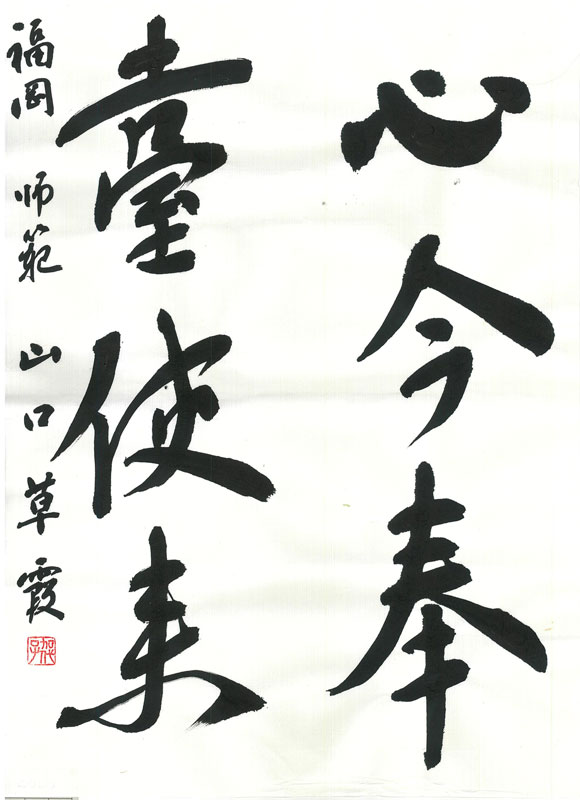 心今奉
臺使来
福岡 师範 山口草霞